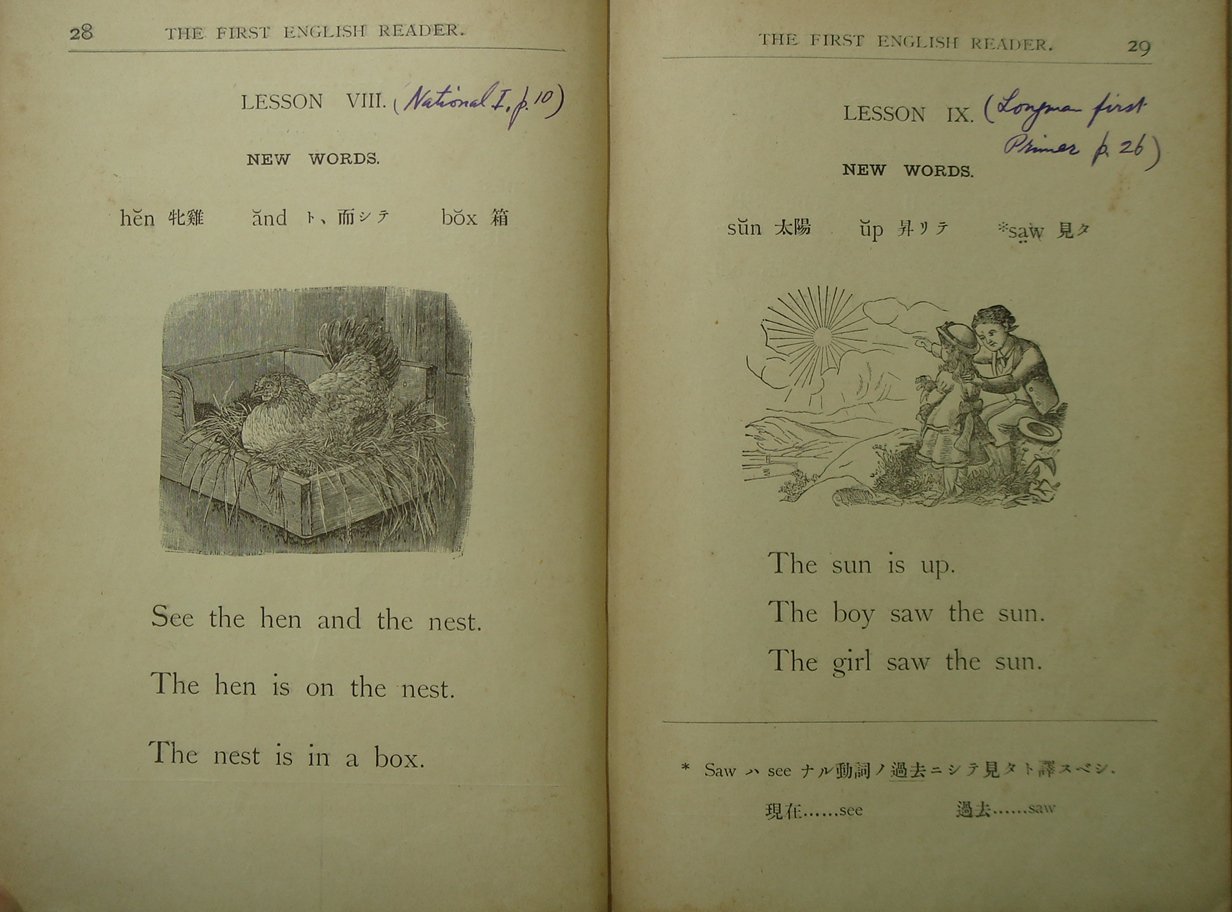 28 THE FIRST ENGLISH READER.
LESSON VIII. (National I, p. 10)
NEW WORDS.
hĕn 牝雞 ănd ト、而シテ bŏx 箱
See the hen and the nest.
The hen is on the nest.
The nest is in a box.
THE FIRST ENGLISH READER. 29
LESSON IX. (Longman first
Primer p. 26)
NEW WORDS.
sŭn 太陽 ŭp 昇リテ *sa̤w 見タ
The sun is up.
The boy saw the sun.
The girl saw the sun.
* Saw ハ see ナル動詞ノ過去ニシテ見タト譯スベシ.
現在......see 過去......saw